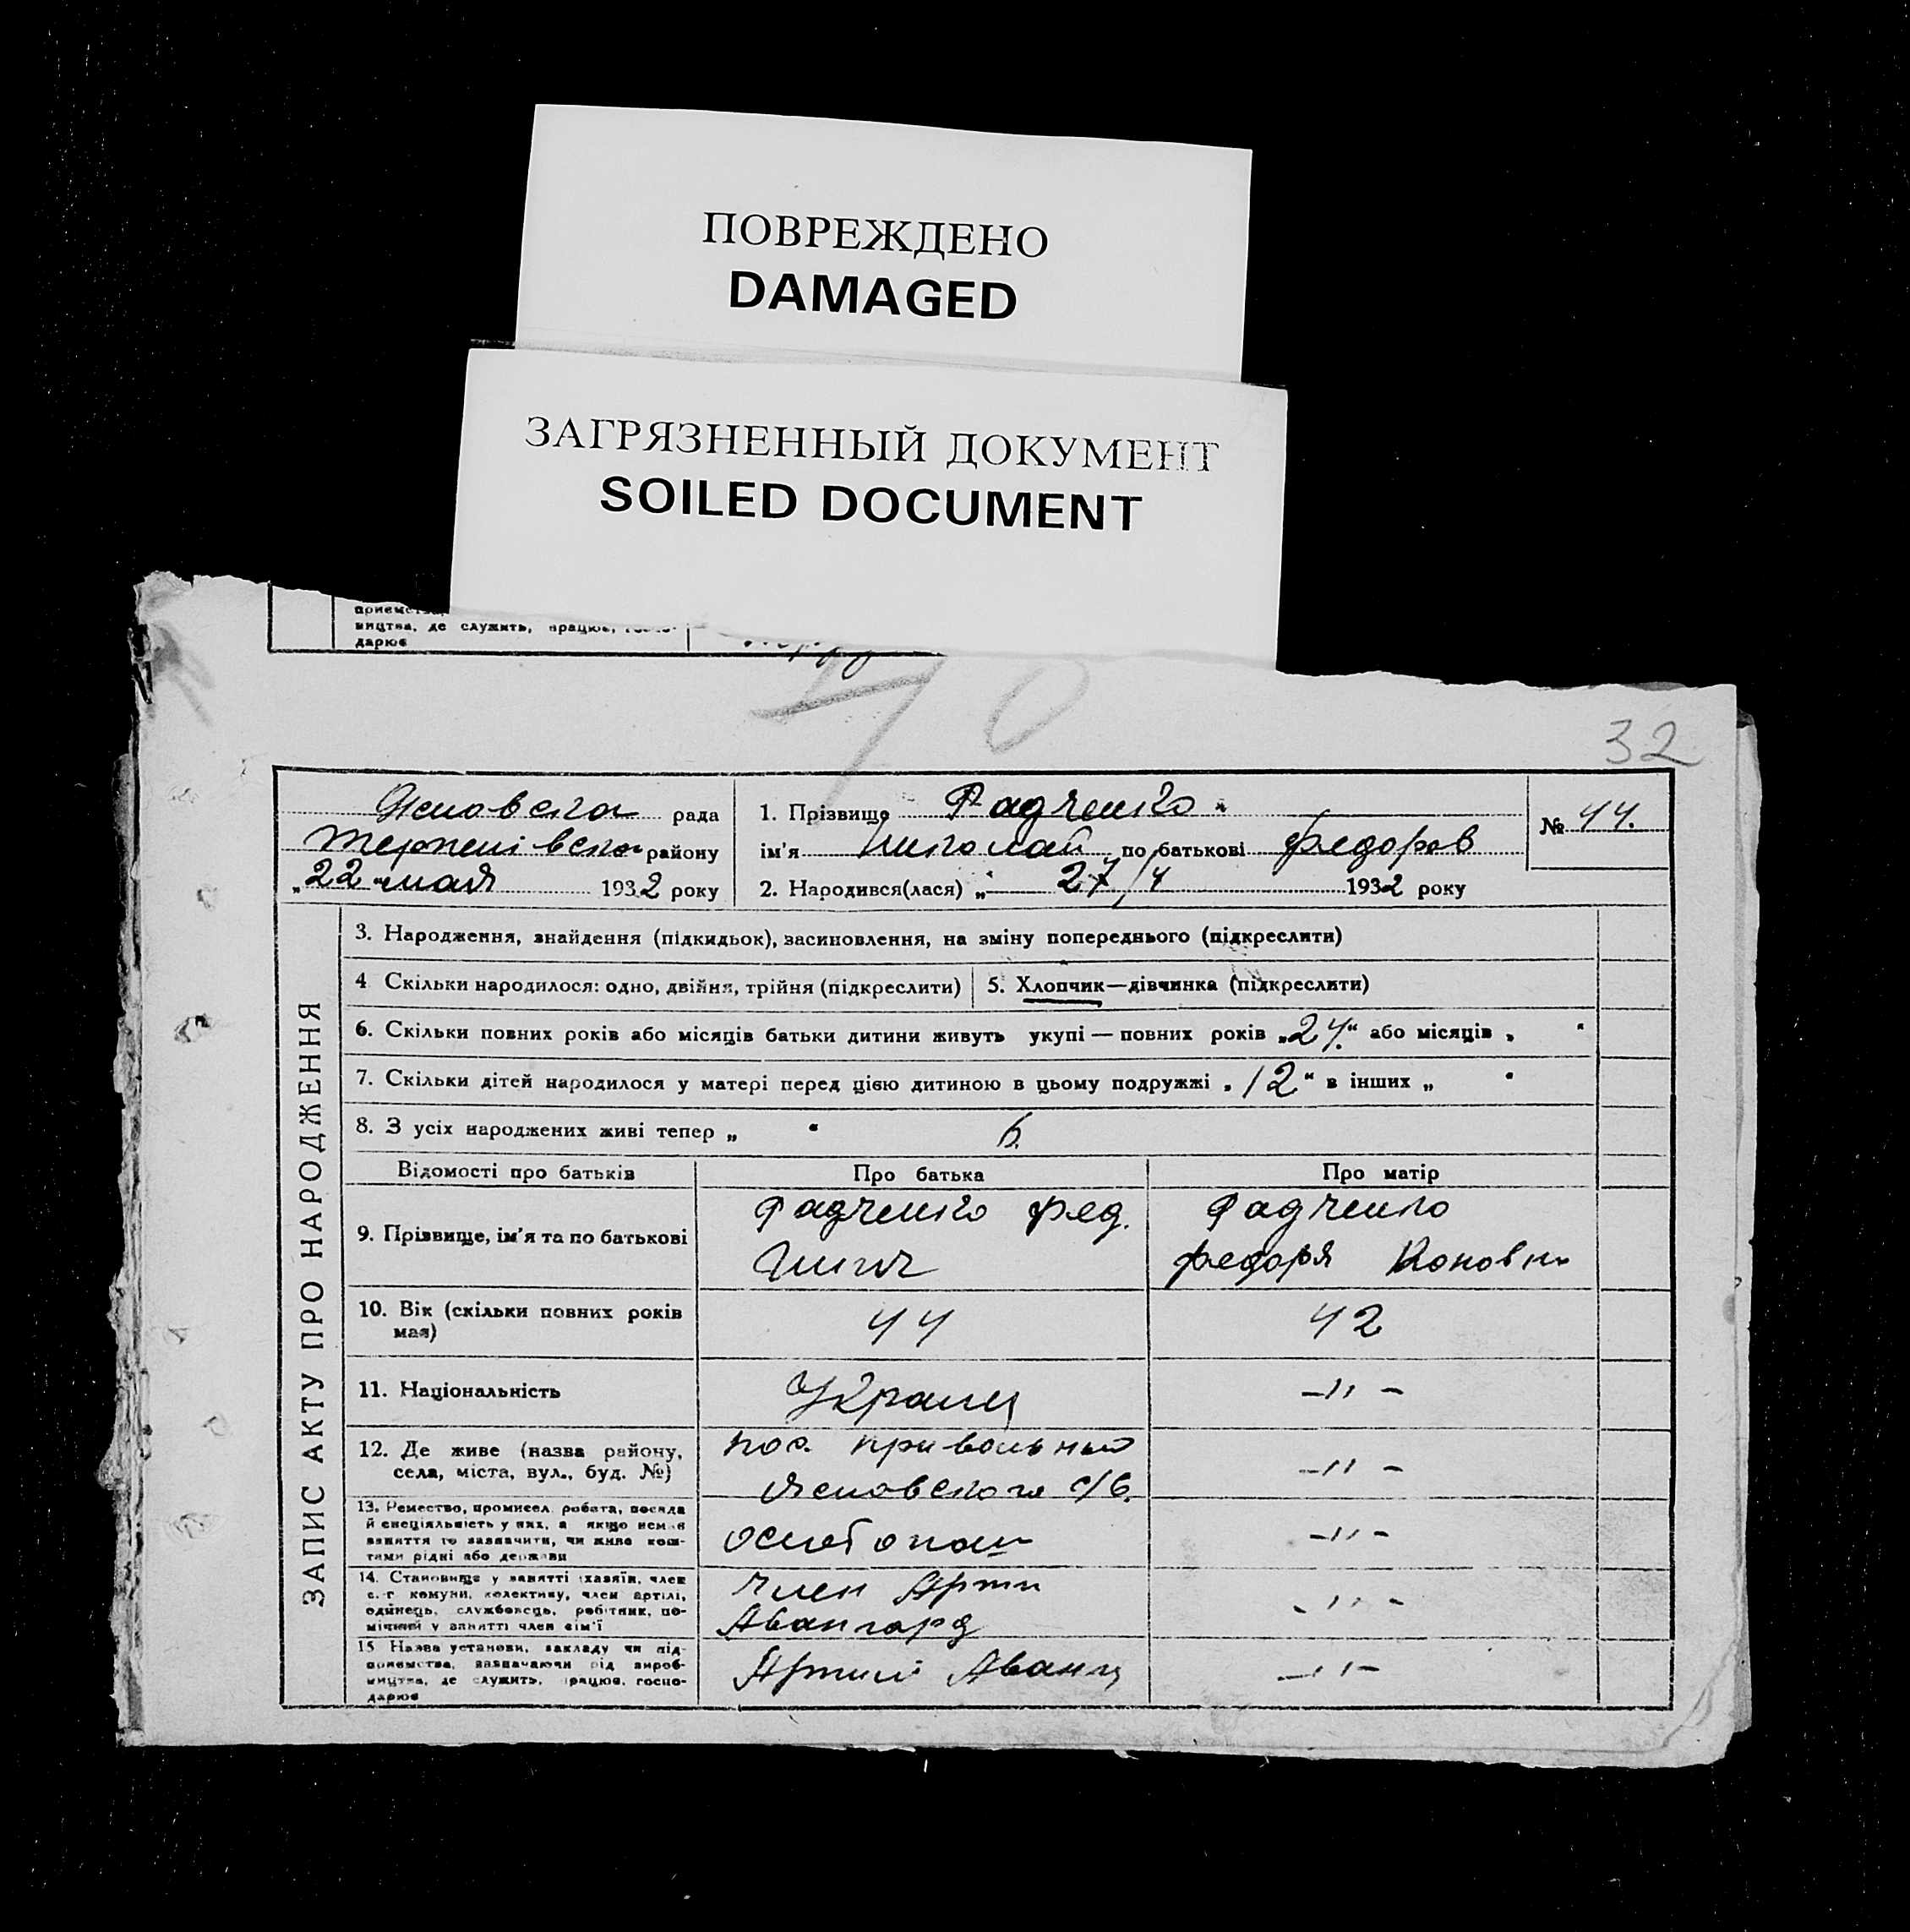 ПОВРЕЖДЕНО
DAMAGED
ЗАГРЯЗНЕННЫЙ ДОКУМЕНТ
SOILED DOCUMENT
ництва, де служить, працює, госпо-
дарює
32
рада
1. Прізвище Радченко
№ 44.
району
ім'я Николай по батькові Федоров
"22" мая 1932 року
2. Народився(лася) „ 27/4 1932 року
ЗАПИС АКТУ ПРО НАРОДЖЕННЯ
3. Народження, знайдення (підкидьок), засиновлення, на зміну попереднього (підкреслити)
4 Скільки народилося: одно, двійня, трійня (підкреслити)
5. Хлопчик—дівчинка (підкреслити)
6. Скільки повних років або місяців батьки дитини живуть укупі — повних років „24“ або місяців „ “
7. Скільки дітей народилося у матері перед цією дитиною в цьому подружжі „12“ в інших „ “
8. З усіх народжених живі тепер „ “ 6.
Відомості про батьків
Про батька
Про матір
9. Прізвище, ім'я та по батькові
Радченко Фед.
Радченко
10. Вік (скільки повних років
має)
44
42
11. Національність
Украин
–"–
12. Де живе (назва району,
села, міста, вул., буд. №)
пос. Привольный
с/с.
–"–
13. Ремество, промисел, робота, посада
й спеціяльність у них, а якщо немає
заняття то зазначити, чи живе кош-
тами рідні або держави
–"–
14. Становище у занятті хазяїн, член
с.-г комуни, колективу, член артілі,
одинець, службовець, робітник, по-
мічний у занятті член сім'ї
член Арти
Авангард
–"–
15 Назва установи, закладу чи під-
приємства, зазначаючи рід вироб-
ництва, де служить, працює, госпо-
дарює
Артілі Аванг
–"–